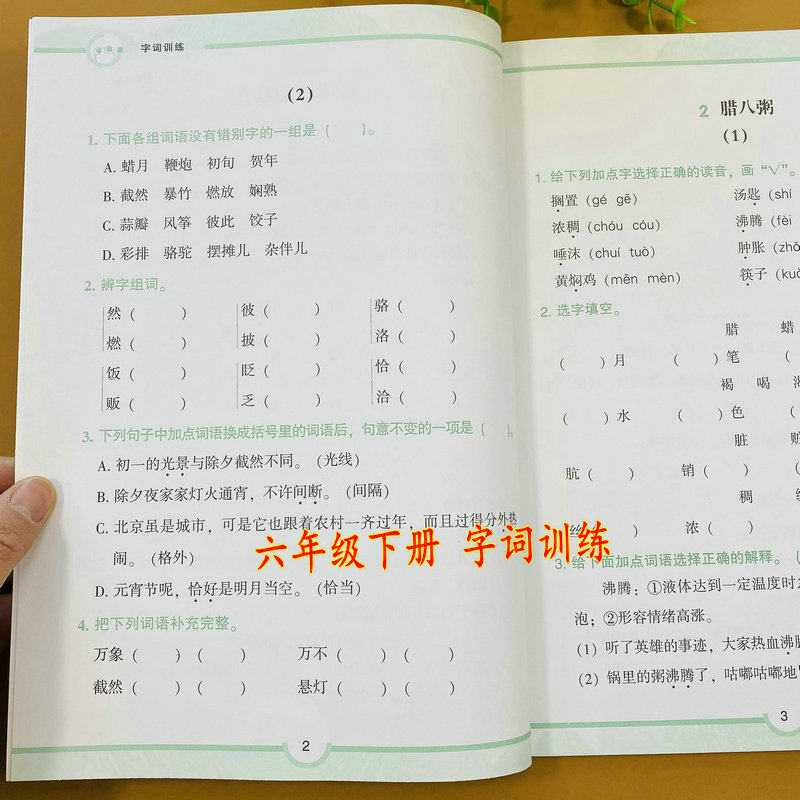 字词训练
(2)
1. 下面各组词语没有错别字的一组是（ ）。
A. 蜡月 鞭炮 初旬 贺年
B. 截然 暴竹 燃放 娴熟
C. 蒜瓣 风筝 彼此 饺子
D. 彩排 骆驼 摆摊儿 杂伴儿
2. 辨字组词。
然（ ） 彼（ ） 骆（ ）
燃（ ） 披（ ） 洛（ ）
饭（ ） 眨（ ） 恰（ ）
贩（ ） 乏（ ） 洽（ ）
3. 下列句子中加点词语换成括号里的词语后，句意不变的一项是（ ）。
A. 初一的光景与除夕截然不同。（光线）
B. 除夕夜家家灯火通宵，不许间断。（间隔）
C. 北京虽是城市，可是它也跟着农村一齐过年，而且过得分外热
闹。（格外）
D. 元宵节呢，恰好是明月当空。（恰当）
4. 把下列词语补充完整。
万象（ ）（ ） 万不（ ）（ ）
截然（ ）（ ） 悬灯（ ）（ ）
2
2 腊八粥
(1)
1. 给下列加点字选择正确的读音，画“√”。
搁置（gé gē） 汤匙（shí
浓稠（chóu cóu） 沸腾（fèi
唾沫（chuí tuò） 肿胀（zhǒ
黄焖鸡（mēn mèn） 筷子（kuà
2. 选字填空。
腊 蜡
（ ）月 （ ）笔 （
褐 喝
（ ）水 （ ）色 （
脏 赃
肮（ ） 销（ ）
稠
丝（ ） 浓（ ）
3. 给下面加点词语选择正确的解释。（
沸腾：①液体达到一定温度时
泡；②形容情绪高涨。
(1) 听了英雄的事迹，大家热血沸腾
(2) 锅里的粥沸腾了，咕嘟咕嘟地
3
六年级下册 字词训练